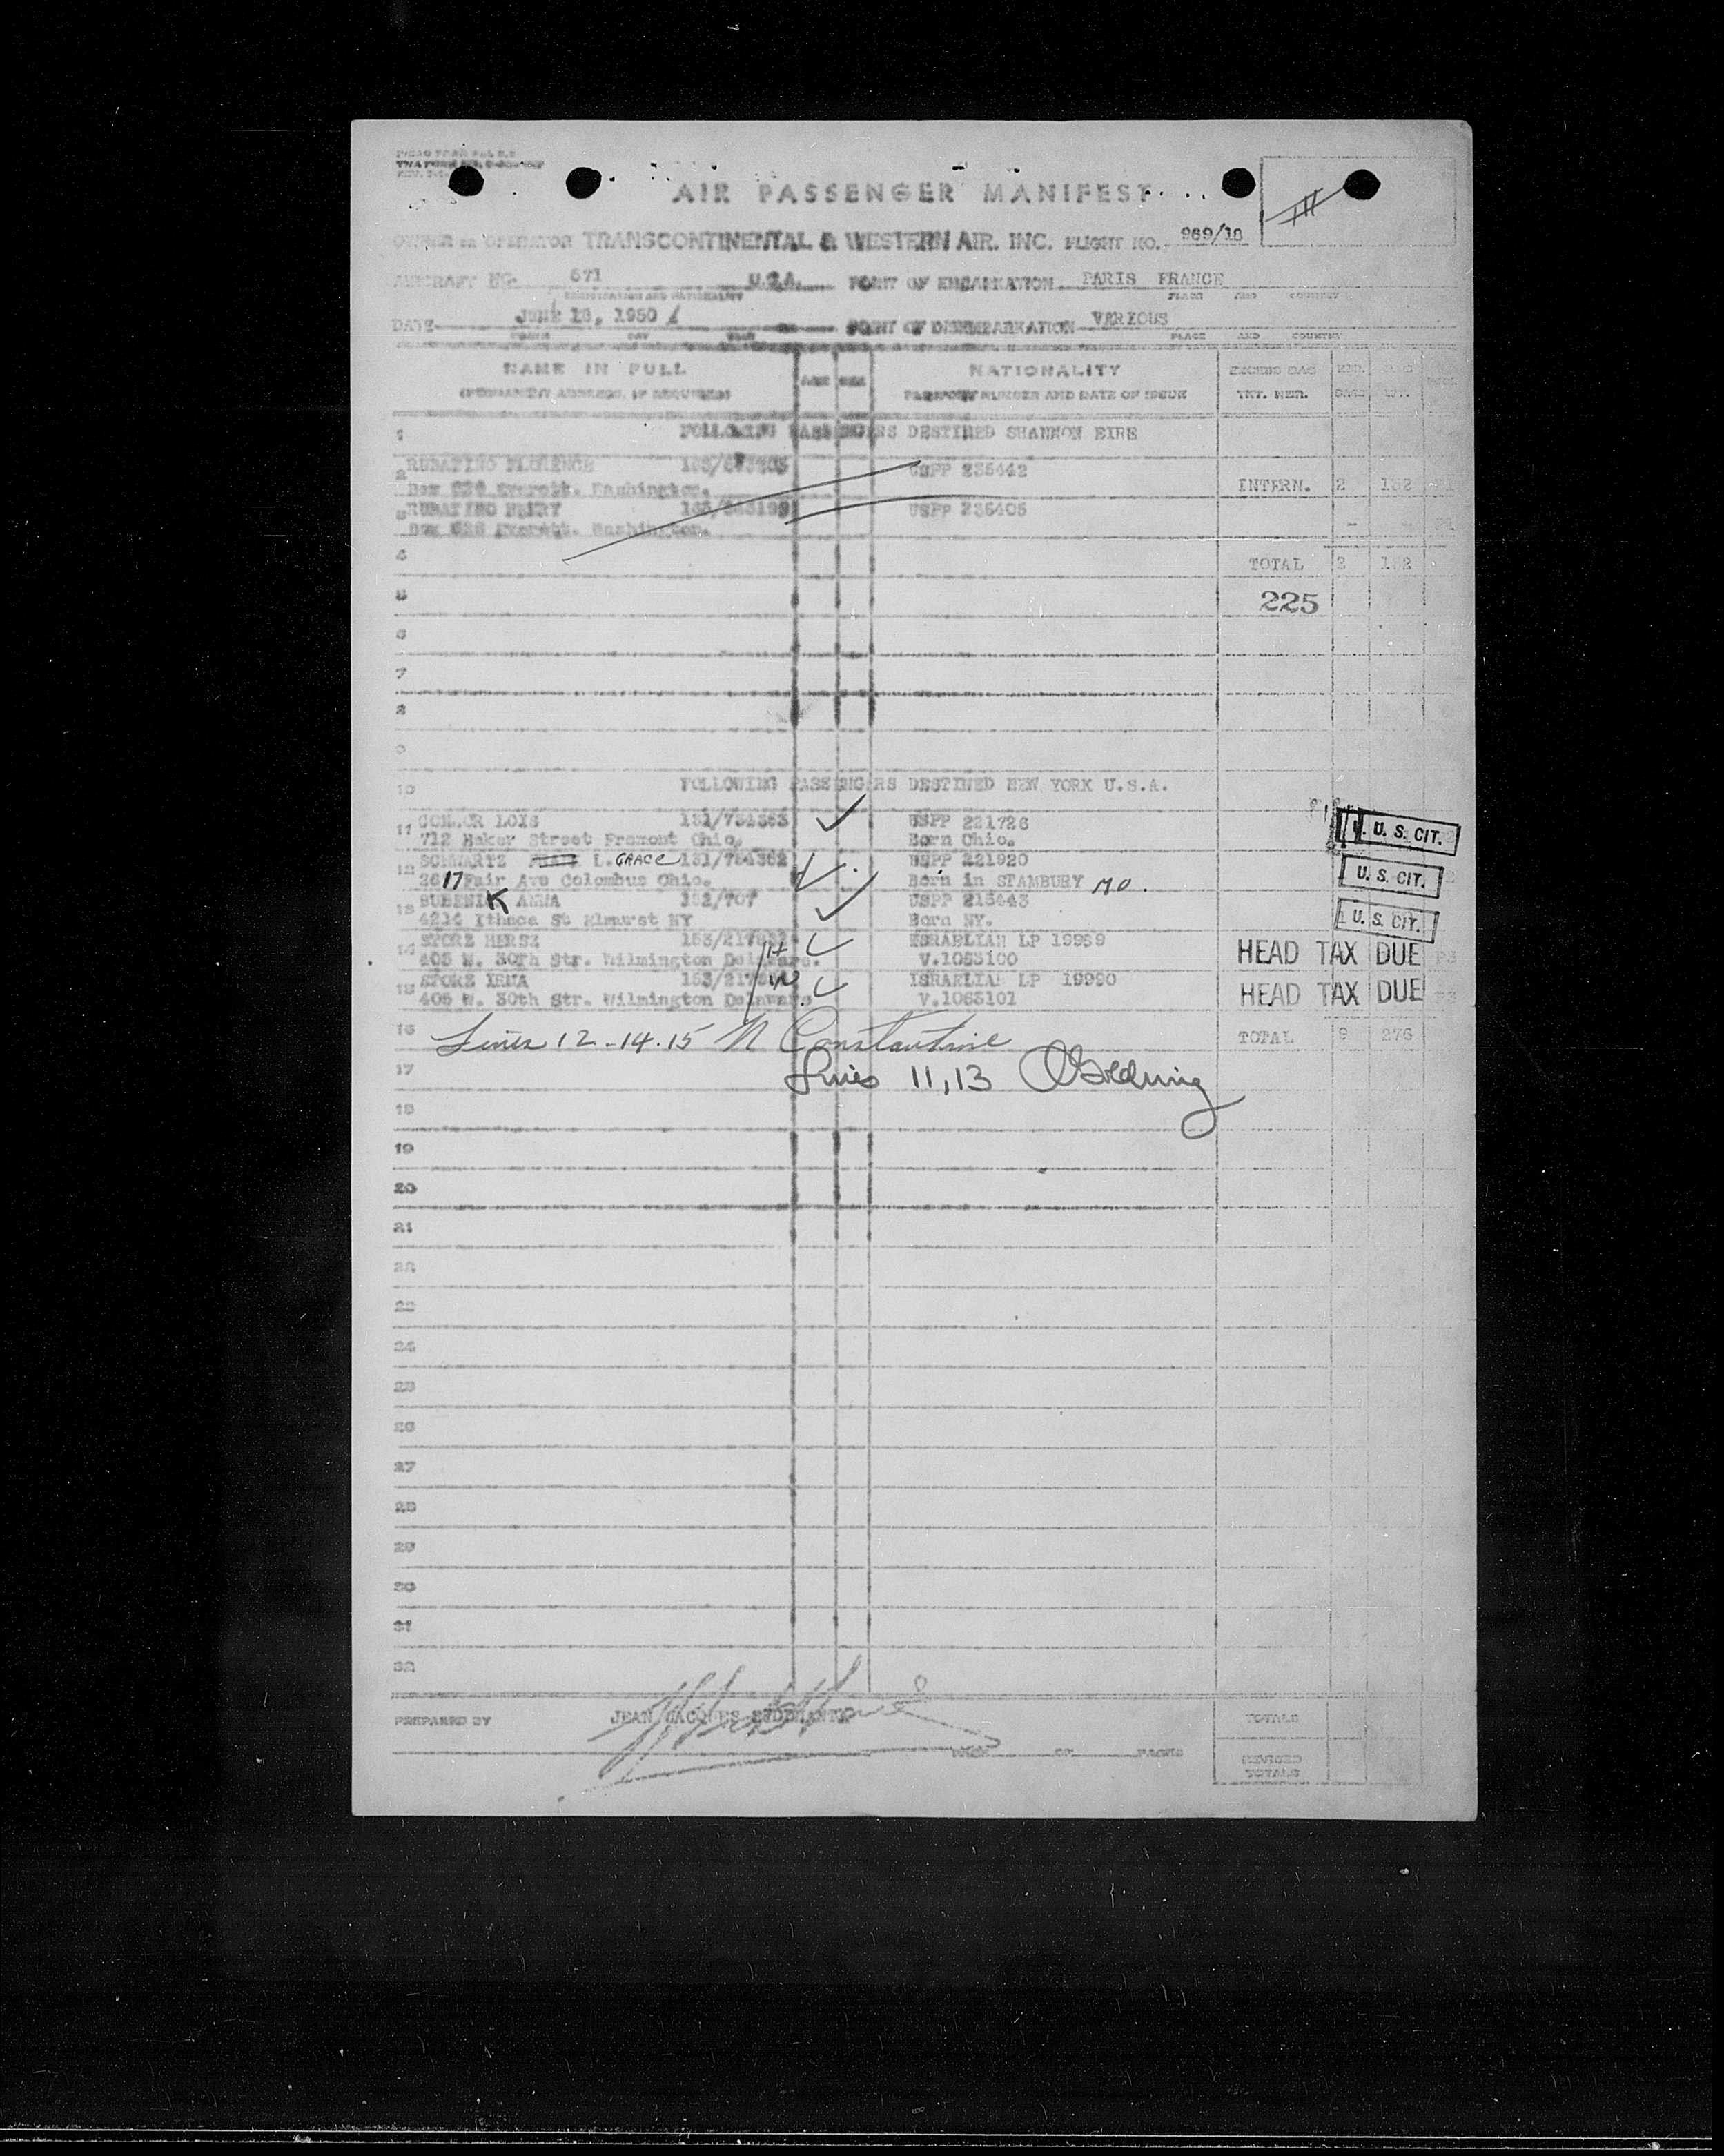 AIR PASSENGER MANIFEST
OWNER OR OPERATOR TRANSCONTINENTAL & WESTERN AIR. INC. FLIGHT NO. 969/18
AIRCRAFT NO. 671 U.S.A. POINT OF EMBARKATION PARIS FRANCE
PLACE AND COUNTRY
DATE JUNE 18, 1950 POINT OF DISEMBARKATION VARIOUS
MONTH DAY YEAR PLACE AND COUNTRY
NAME IN FULL AGE SEX NATIONALITY EXCESS BAG
(PERMANENT ADDRESS, IF REQUIRED) PASSPORT NUMBER AND DATE OF ISSUE TKT. NBR.
1 FOLLOWING PASSENGERS DESTINED SHANNON EIRE
2 RUBATINO FLORENCE USPP 235442
Everett. Washington. INTERN. 2 132
3 RUBATINO HENRY USPP 236405
Everett. Washington.
4 TOTAL 2 132
5 225
6
7
8
9
10 FOLLOWING PASSENGERS DESTINED NEW YORK U.S.A.
11 LOIS 131/754363 USPP 221726 U. S. CIT.
712 Street Fremont Ohio. Born Ohio.
12 SCHWARTZ L. GRACE 131/754362 USPP 221920
2617 Fair Ave Colombus Ohio. Born in STAMBURY MO. U. S. CIT.
13 BUBENIK ANNA 132/707 USPP 215443
4214 Ithaca St Elmurst NY Born NY. U. S. CIT.
14 STORZ HERSZ ISRAELIAN LP 19989 HEAD TAX DUE
405 W. 30Th Str. Wilmington Delaware. H V.1053100
15 STORZ ISRAELIAN LP 19990 HEAD TAX DUE
405 W. 30th Str. Wilmington Delaware W V.1053101
16 Lines 12-14-15 N Constantine TOTAL 9 276
17 Lines 11,13
18
19
20
21
22
23
24
25
26
27
28
29
30
31
32
PREPARED BY JEAN JACQUES TOTALS
PAGE OF PAGES
REVISED
TOTALS